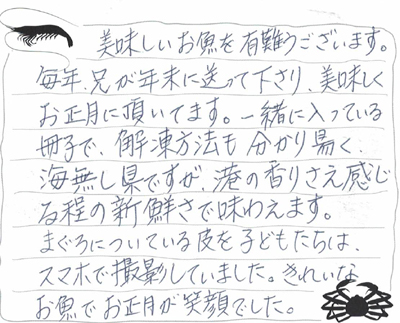 美味しいお魚を有難うございます。
毎年、兄が年末に送って下さり、美味しく
お正月に頂いてます。一緒に入っている
冊子で、解凍方法も分かり易く、
海無し県ですが、港の香りさえ感じ
る程の新鮮さで味わえます。
まぐろについている皮を子どもたちは、
スマホで撮影していました。きれいな
お魚でお正月が笑顔でした。